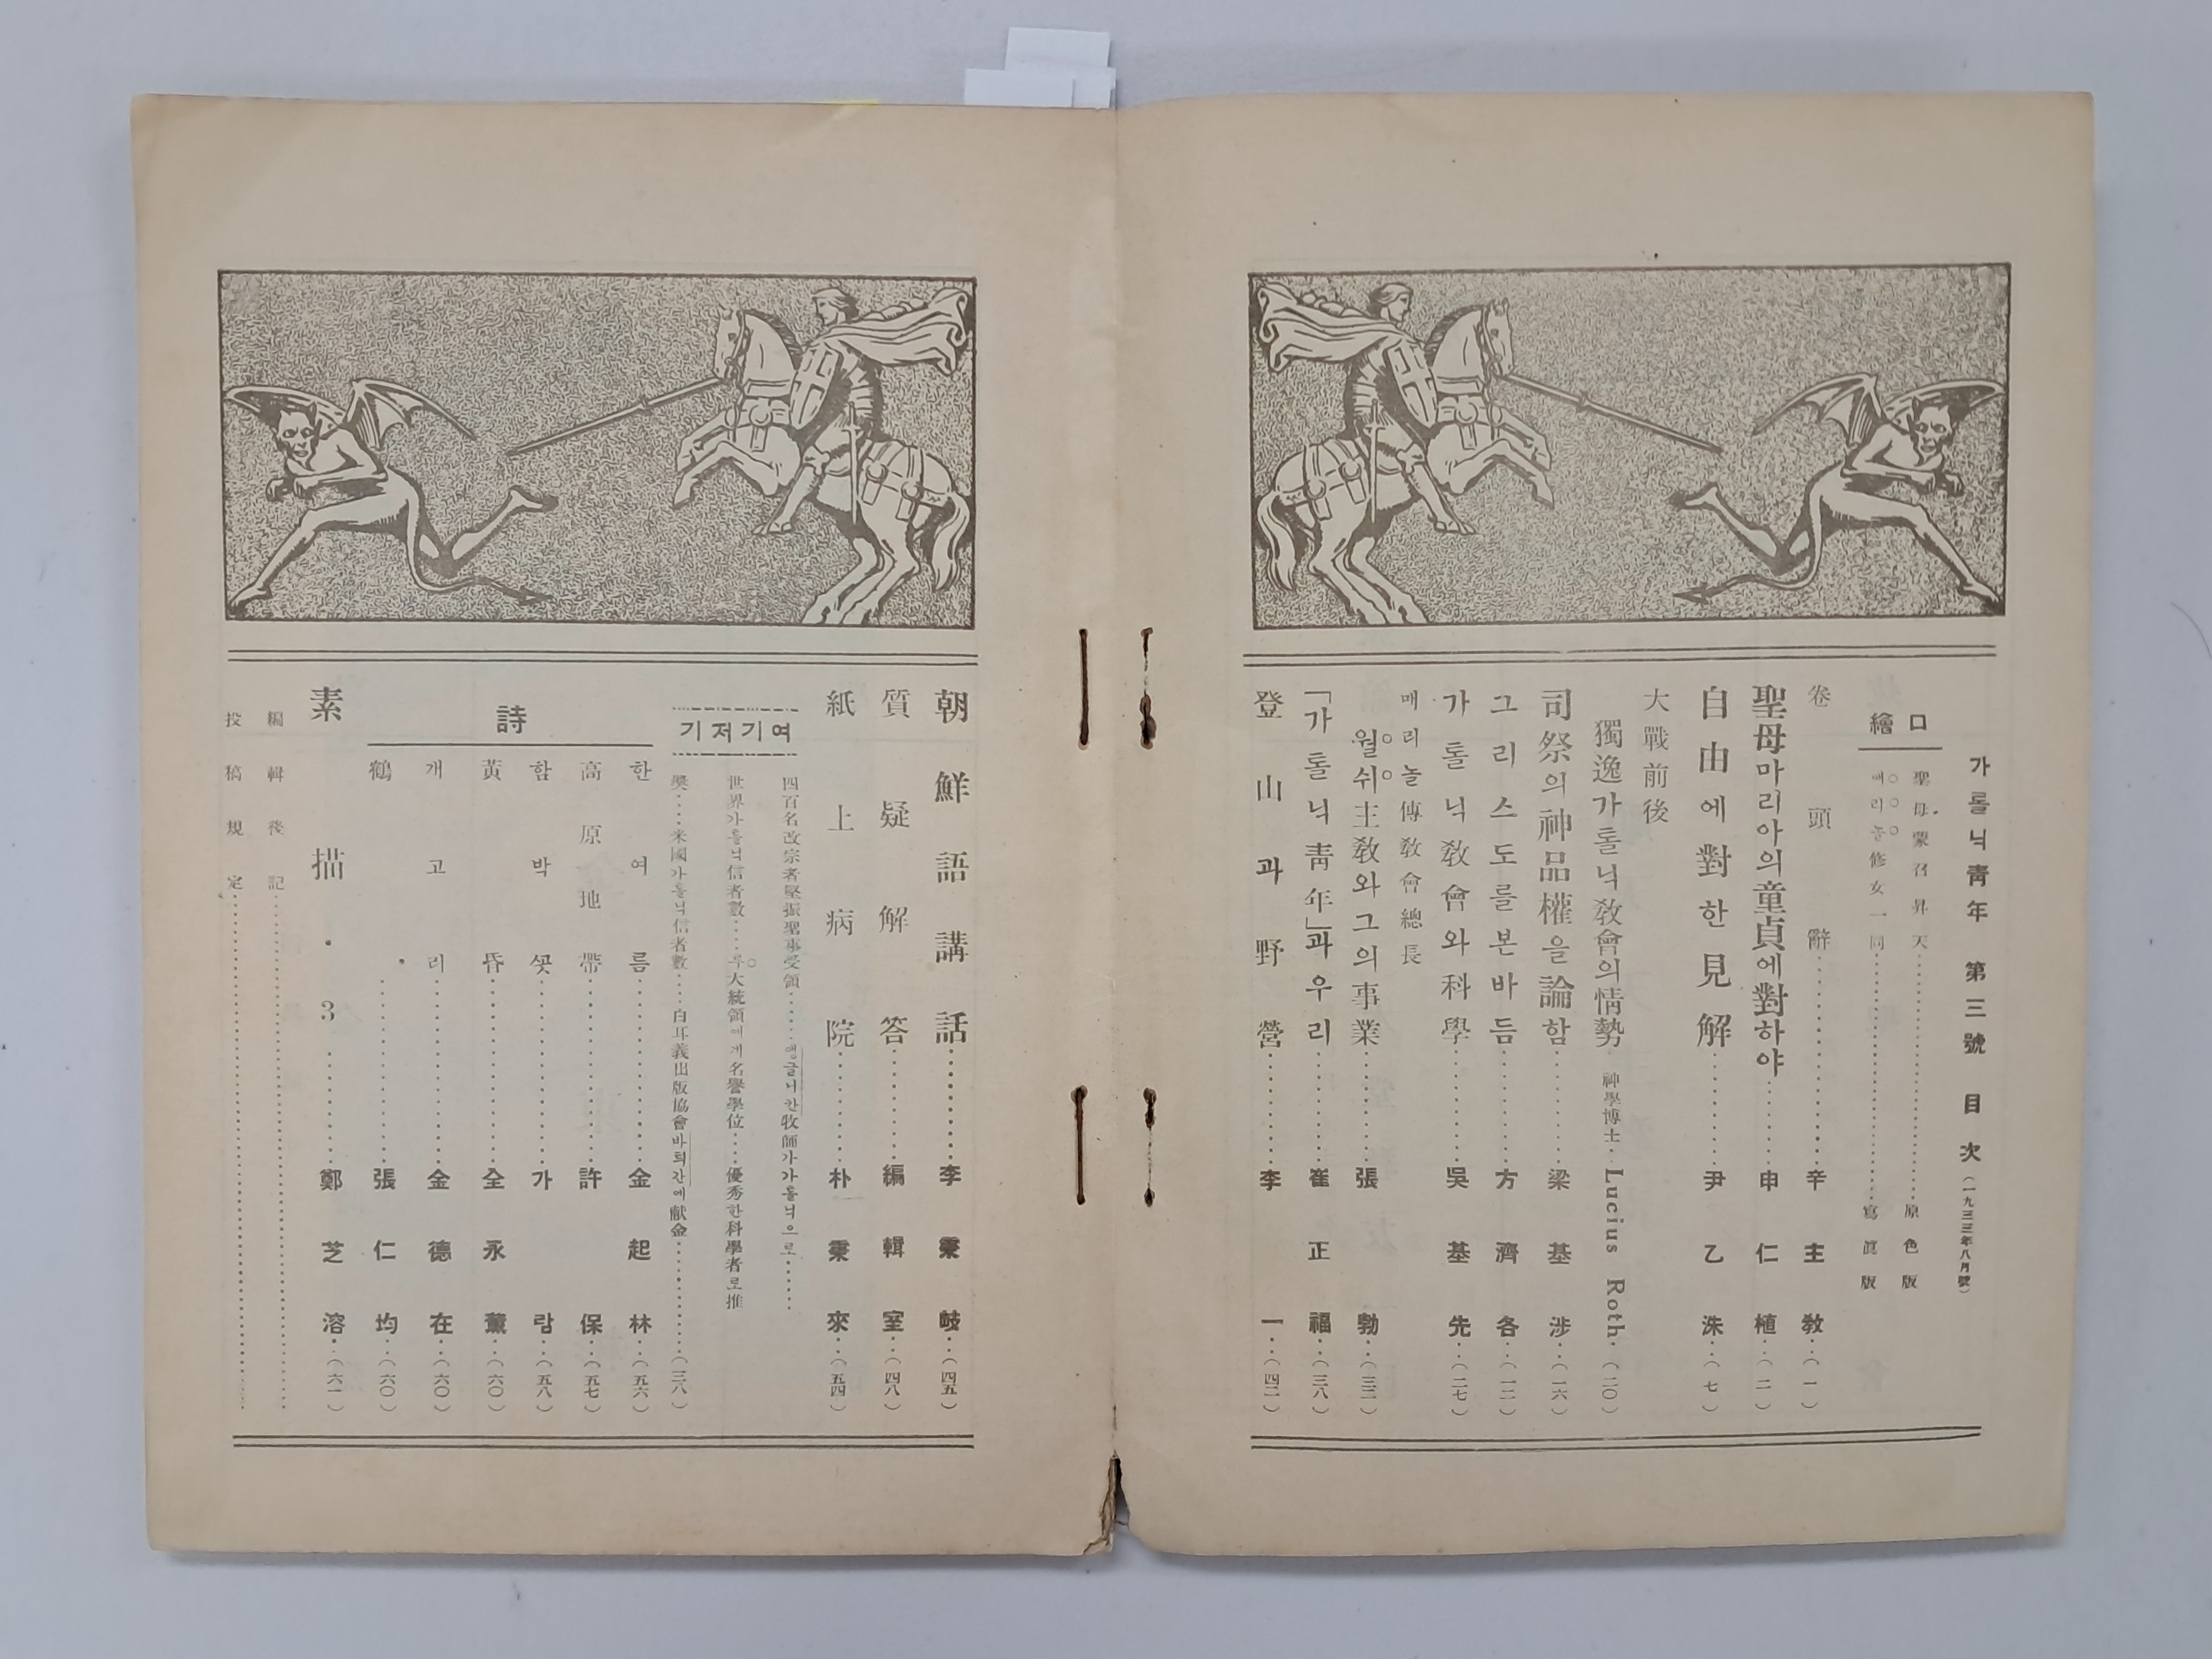 가톨닉靑年 第三號 目次 (一九三三年八月號)
口繪
聖母蒙召昇天……原色版
매리놀修女一同……寫眞版
卷頭辭……辛主敎…(一)
聖母마리아의童貞에對하야……申仁植…(二)
自由에對한見解……尹乙洙…(七)
大戰前後
獨逸가톨닉敎會의情勢 神學博士 Lucius Roth…(二〇)
司祭의神品權을論함……梁基涉…(一六)
그리스도를본바듬……方濟各…(一二)
가톨닉敎會와科學……吳基先…(二七)
매리놀傳敎會總長
월쉬主敎와그의事業……張勃…(三二)
「가톨닉靑年」과우리……崔正福…(三八)
登山과野營……李一…(四二)
朝鮮語講話……李秉岐…(四五)
質疑解答……編輯室…(四八)
紙上病院……朴秉來…(五四)
여기저기
四百名改宗者堅振聖事受領……앵글니칸牧師가가톨닉으로……
世界가톨닉信者數……루大統領에게名譽學位……優秀한科學者로推
奬……米國가톨닉信者數……白耳義出版協會바틔간에献金……(三八)
詩
한여름……金起林…(五六)
高原地帶……許保…(五七)
함박숏……가람…(五八)
黃昏……全永薰…(六〇)
개고리……金德在…(六〇)
鶴……張仁均…(六〇)
素描・3……鄭芝溶…(六一)
編輯後記……
投稿規定……